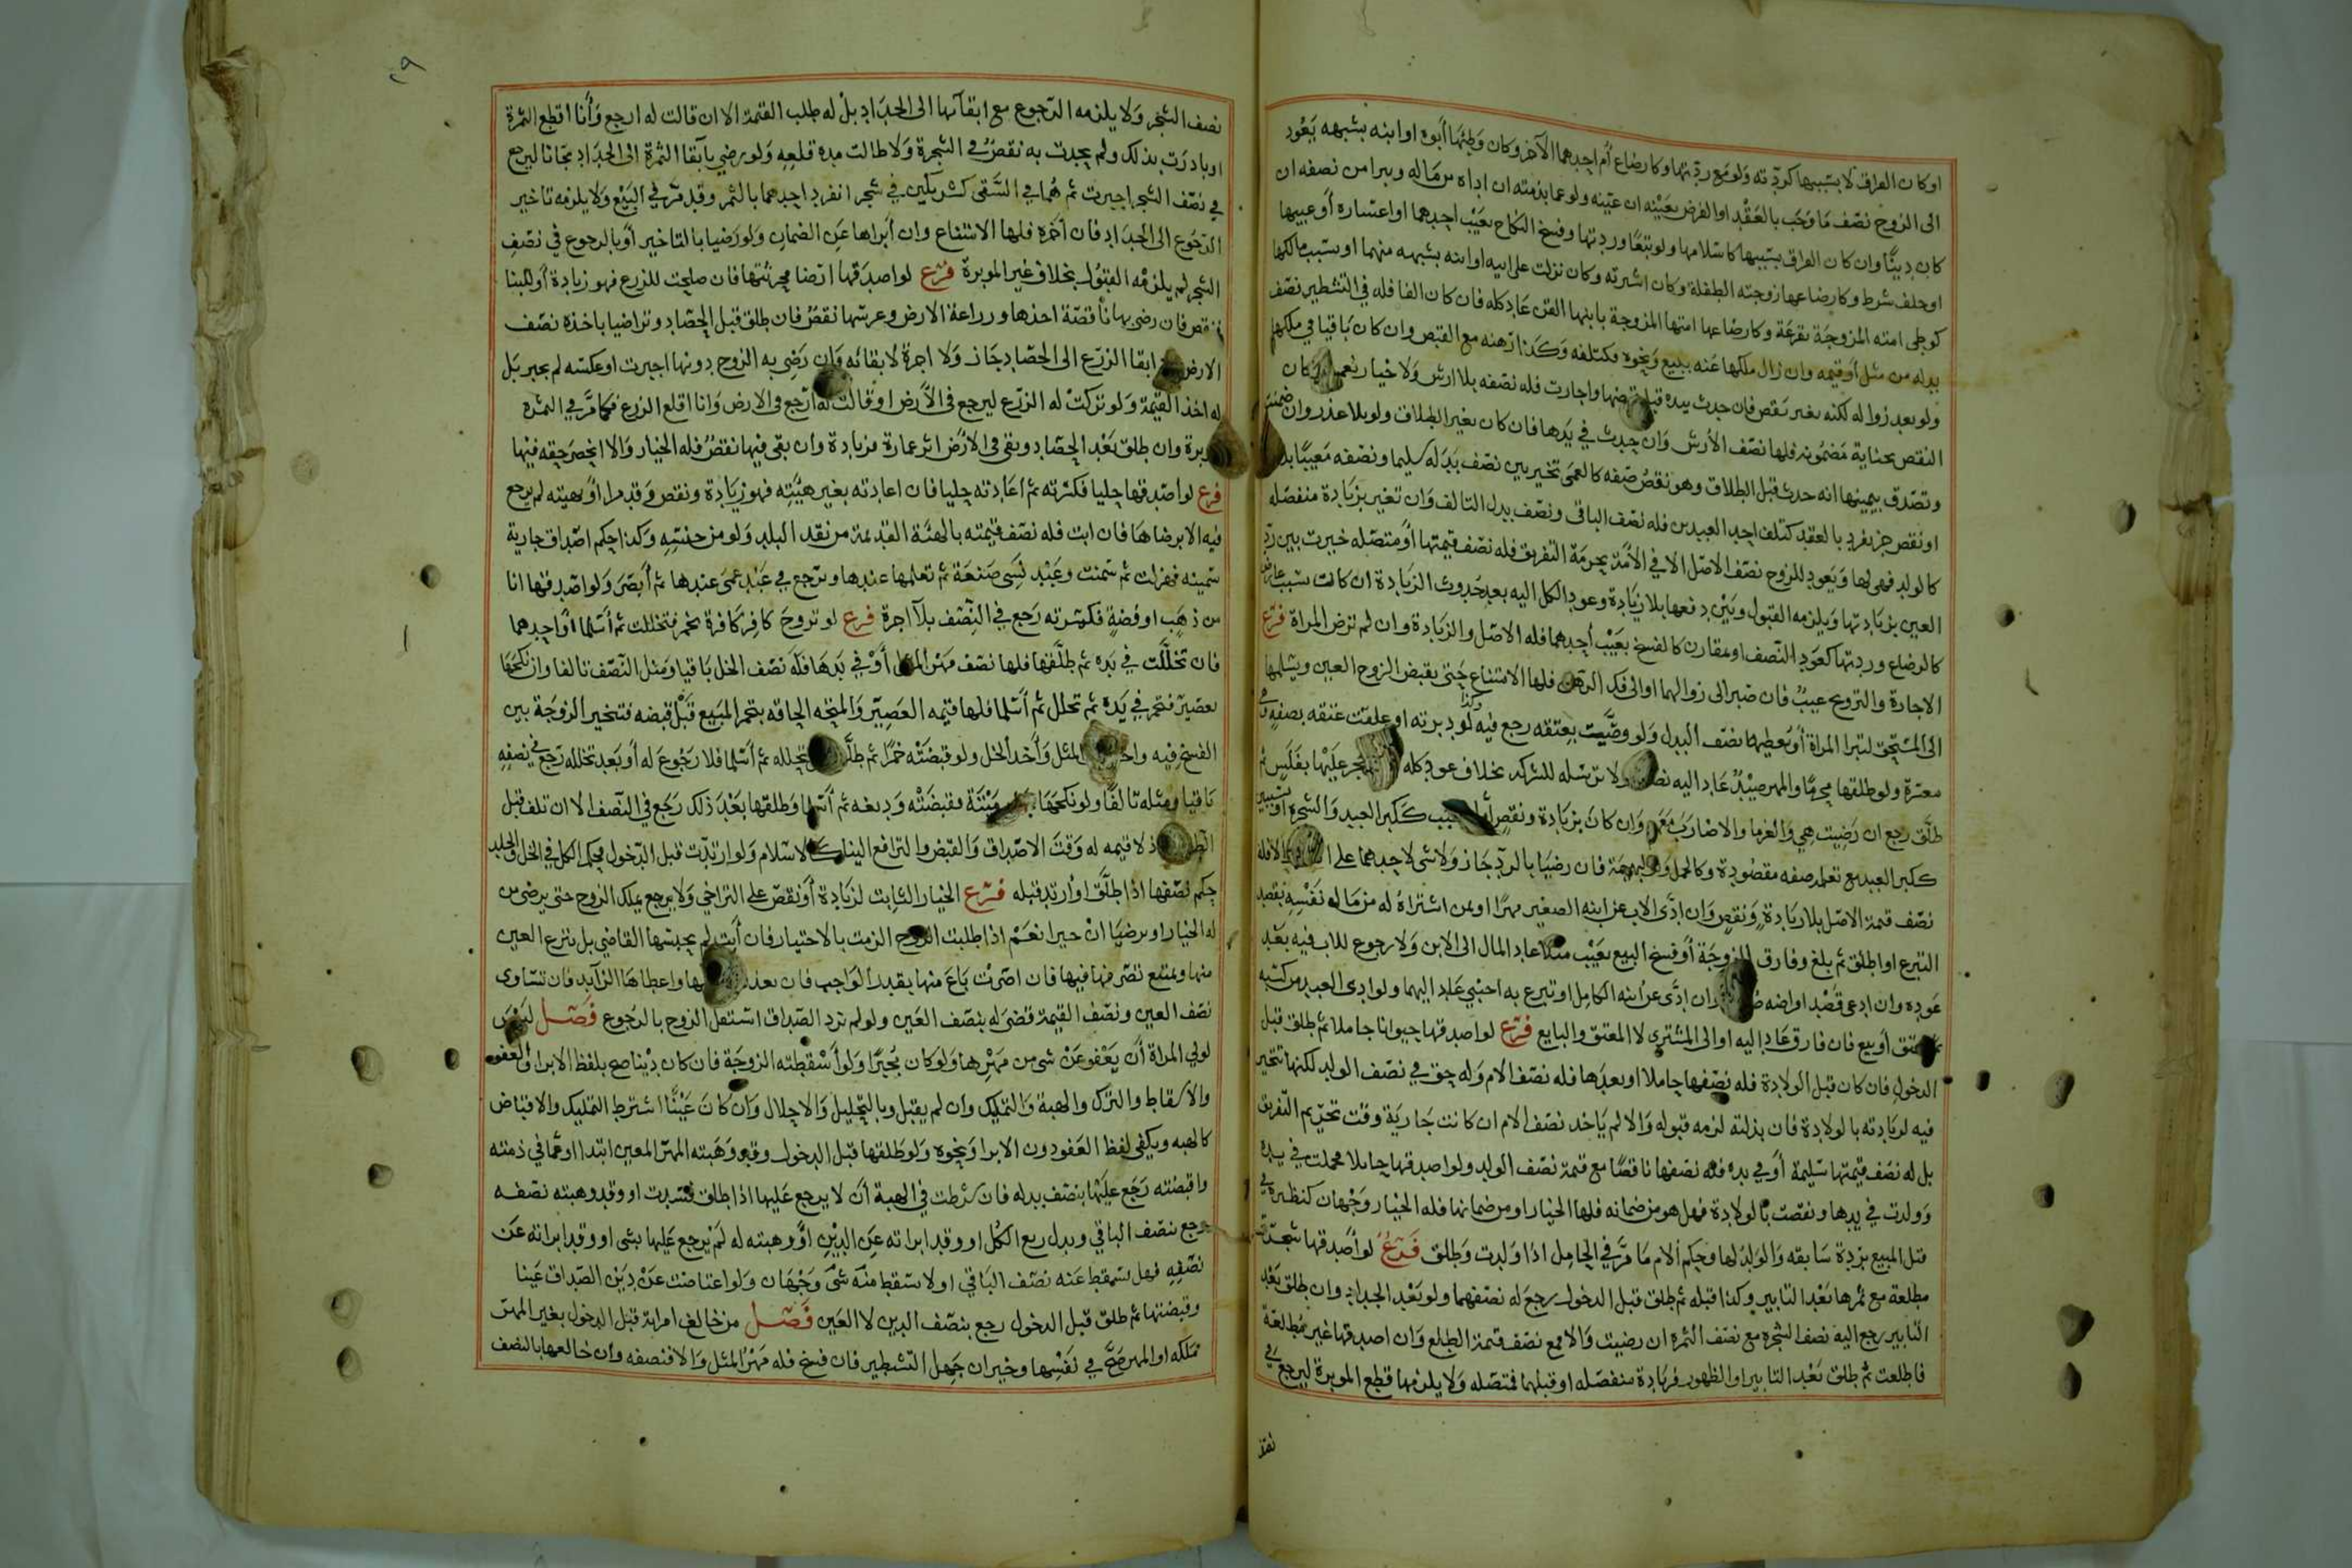 او كان الفراق لا بسببها كردته ولو مع ردتها وكارضاع أم احدهما الآخر وكان وطئها أبوه او ابنه بشبهه يعود
الى الزوج نصف ما وجب بالعقد او الفرض بعينه ان عينه ولو عما بذمته ان اداه من ماله ويبرا من نصفه ان
كان دينا وان كان الفراق بسببها كاسلامها ولو تبعا وردتها وفسخ النكاح بعيب احدهما او اعساره أو عيبها
او حلف شرط وكارضاعها زوجته الطفلة وكان اشترته وكان نزلت على ابيه او ابنه بشبهه منهما او بسبب مالكها
كوطى امته المزوجة وكارضاعها امتها المزوجة بابنها القن عاد كله فان كان الفا فله في التشطير نصف
بدله من مثل أو قيمه وان زال ملكها عنه ببيع ونحوه فكتلفه وكذا رهنه مع القبض وان كان باقيا في ملكها
ولو بعد زواله لكنه بغير نقص فان حدث بيده قبل قبضها واجازت فله نصفه بلا ارش ولا خيار نعم ان كان
النقص بجناية مضمونه فلها نصف الأرش وان حدث في يدها فان كان بغير الطلاق ولو بلا عذر وان
وتصدق بيمينها انه حدث قبل الطلاق وهو نقص صفه كالعمى تخير بين نصف بدله سليما ونصفه معيبا بلا
او نقص جز يفرد بالعقد كتلف احد العبدين فله نصف الباقي ونصف بدل التالف وان تغير بزيادة منفصله
كالولد فهى لها ويعود للزوج نصف الاصل الا في الأمة بحرمة التفريق فله نصف قيمتها أو متصله خيرت بين رد
العين بزيادتها ويلزمه القبول وبين دفعها بلا زيادة وعود الكل اليه بعد حدوث الزيادة ان كانت بسبب عارض
كالرضاع وردتها كعود النصف او مقارن كالفسخ بعيب أحدهما فله الاصل والزيادة وان لم ترض المراة فرع
الاجارة والتزويج عيب فان صبر الى زوالهما او الى فك الرهن فلها الامتناع حتى يقبض الزوج العين ويسلمها
الى المستحق لتبرا المراة أو يعطيها نصف البدل ولو وصيت بعتقه رجع فيه وكذا لو دبرته او علقت عتقه بصفه
معسرة ولو طلقها محرما والمهر صيد عاد اليه ولا ترسله للشركه بخلاف عود كله عليها بفلس ثم
طلق رجع ان رضيت هى والغرما والا ضارب وان كان بزيادة ونقص ككبر العبد والشجر
ككبر العبد مع تعلم صفه مقصودة وكالحمل فان رضيا بالرد جاز ولا شى لاحدهما على
نصف قيمة الاصل بلا زيادة ونقص وان ادى الاب عن ابنه الصغير مهرا او ثمن اشتراه له من ماله نفسه بقصد
التبرع او اطلق ثم بلغ وفارق الزوجة أو فسخ البيع بعيب مثلا عاد المال الى الابن ولا رجوع للاب فيه بعد
عوده وان ادعى قصد اقراضه وان ادى عن ابنه الكامل او تبرع به اجنبي عاد اليهما ولو ادى العبد من كسبه
ثم عتق أو بيع فان فارق عاد اليه او الى المشتري لا المعتق والبايع فرع لو اصدقها حيوانا حاملا ثم طلق قبل
الدخول فان كان قبل الولادة فله نصفها حاملا او بعدها فله نصف الام وله حق في نصف الولد لكنها تتخير
فيه لزيادته بالولادة فان بذلته لزمه قبوله والا لم ياخذ نصف الام ان كانت جارية وقت تحريم التفريق
بل له نصف قيمتها سليمة أو في يده فله نصفها ناقصا مع قيمة نصف الولد ولو اصدقها حاملا فحملت في يده
وولدت في يدها ونقصت بالولادة فهل هو من ضمانه فلها الخيار او من ضمانها فله الخيار وجهان كنظيره في
قتل المبيع بردة سابقه والولد لها وحكم الام ما مر في الحامل اذا ولدت وطلق فرع لو أصدقها شجرة
مطلعة مع ثمرها بعد التابير وكذا قبله ثم طلق قبل الدخول رجع له نصفهما ولو بعد الجداد وان طلق بعد
التابير رجع اليه نصف الشجرة مع نصف الثمرة ان رضيت والا فمع نصف قيمة الطلع وان اصدقها غير مطلعة
فاطلعت ثم طلق بعد التابير او الظهور فزيادة منفصله او قبلهما فمتصله ولا يلزمها قطع الموبرة ليرجع في
نصف
٢٩
نصف الشجر ولا يلزمه الرجوع مع ابقائها الى الجداد بل له طلب القيمة الا ان قالت له ارجع وأنا اقطع الثمرة
او بادرت بذلك ولم يحدث به نقص في الشجرة ولا طالت مدة قلعه ولو رضي بابقا الثمرة الى الجداد مجانا ليرجع
في نصف الشجر اجبرت ثم هما في السقى كشريكين في شجر انفرد احدهما بالثمر وقد مر في البيع ولا يلزمه تاخير
الرجوع الى الجداد فان أخره فلها الامتناع وان أبراها عن الضمان ولو رضيا بالتاخير أو بالرجوع في نصف
الشجر لم يلزمه القبول بخلاف غير الموبرة فرع لو اصدقها ارضا فحرثتها فان صلحت للزرع فهو زيادة أو للبنا
فنقص فان رضى بها ناقصة اخذها وزراعة الارض وغرسها نقص فان طلق قبل الحصاد وتراضيا باخذه نصف
الارض ابقا الزرع الى الحصاد جاز ولا اجرة لابقائه وان رضى به الزوج دونها اجبرت او عكسه لم يجبر بل
له اخذ القيمة ولو تركت له الزرع ليرجع في الأرض او قالت له ارجع في الارض وانا اقلع الزرع فكما مر في الثمرة
الموبرة وان طلق بعد الحصاد وبقى في الارض اثر عمارة فزيادة وان بقى فيها نقص فله الخيار والا انحصر حقه فيها
فرع لو اصدقها حليا فكسرته ثم اعادته حليا فان اعادته بغير هيئته فهو زيادة ونقص وقد مر او بهيئته لم يرجع
فيه الا برضاها فان ابت فله نصف قيمته بالهيئة القديمة من نقد البلد ولو من جنسه وكذا حكم اصداق جارية
سمينه فهزلت ثم سمنت وعبد نسى صنعة ثم تعلمها عندها ويرجع في عبد عمى عندها ثم أبصر ولو اصدقها انا
من ذهب او فضة فكسرته رجع في النصف بلا اجرة فرع لو تزوج كافر كافرة بخمر فتخللت ثم أسلما أو احدهما
فان تخللت في يده ثم طلقها فلها نصف مهر المثل أو في يدها فله نصف الخل باقيا ومثل النصف تالفا وان نكحها
بعصير فتخمر في يده ثم تخلل ثم أسلما فلها قيمه العصير والمتجه الحاقه بتخمر المبيع قبل قبضه فتتخير الزوجة بين
الفسخ فيه المثل وأخذ الخل ولو قبضته خمرا ثم تخلله ثم أسلما فلا رجوع له أو بعد تخلله رجع في نصفه
باقيا ومثله تالفا ولو نكحها ميتة فقبضته ودبغه ثم أسلما وطلقها بعد ذلك رجع في النصف الا ان تلف قبل
اذ لا قيمه له وقت الاصداق والقبض والترافع الينا كالاسلام ولو ارتدت قبل الدخول فحكم الكل في الخل والجلد
حكم نصفها اذا طلق او ارتد قبله فرع الخيار الثابت لزيادة أو نقص على التراخي ولا يرجع بملك الزوج حتى يرضى من
له الخيار او يرضيا ان خيرا نعم اذا طلبت الزوج الزمت بالاختيار فان أبت لم يحبسها القاضي بل ينزع العين
منها ويمتنع تصرفها فيها فان اصرت باع منها بقدر الواجب فان تعذر واعطاها الزايد فان تساوى
نصف العين ونصف القيمة قضى له بنصف العين ولو لم تزد الصداق استقل الزوج بالرجوع فصل ليس
لولي المراة أن يعفو عن شى من مهرها ولو كان مجبرا ولو أسقطته الزوجة فان كان دينا صح بلفظ الابرا والعفو
والاسقاط والترك والهبة والتمليك وان لم يقبل وبالتحليل والاحلال وان كان عينا اشترط التمليك والاقباض
كالهبه ويكفي لفظ العفو دون الابرا ونحوه ولو طلقها قبل الدخول وقد وهبته المهر المعين ابتدا او عما في ذمته
واقبضته رجع عليها بنصف بدله فان شرطت في الهبة أن لا يرجع عليها اذا طلق فسدت او وقد وهبته نصفه
رجع بنصف الباقي وبدل ربع الكل او وقد ابراته عن الدين أو وهبته له لم يرجع عليها بشى او وقد ابراته عن
نصفه فهل يسقط عنه نصف الباقي او لا يسقط منه شى وجهان ولو اعتاضت عن دين الصداق عينا
وقبضتها ثم طلق قبل الدخول رجع بنصف الدين لا العين فصل من خالف امراته قبل الدخول بغير المهر
ملكه او المهر صح في نفسها وخير ان جهل التشطير فان فسخ فله مهر المثل والا فنصفه وان خالعها بالنصف